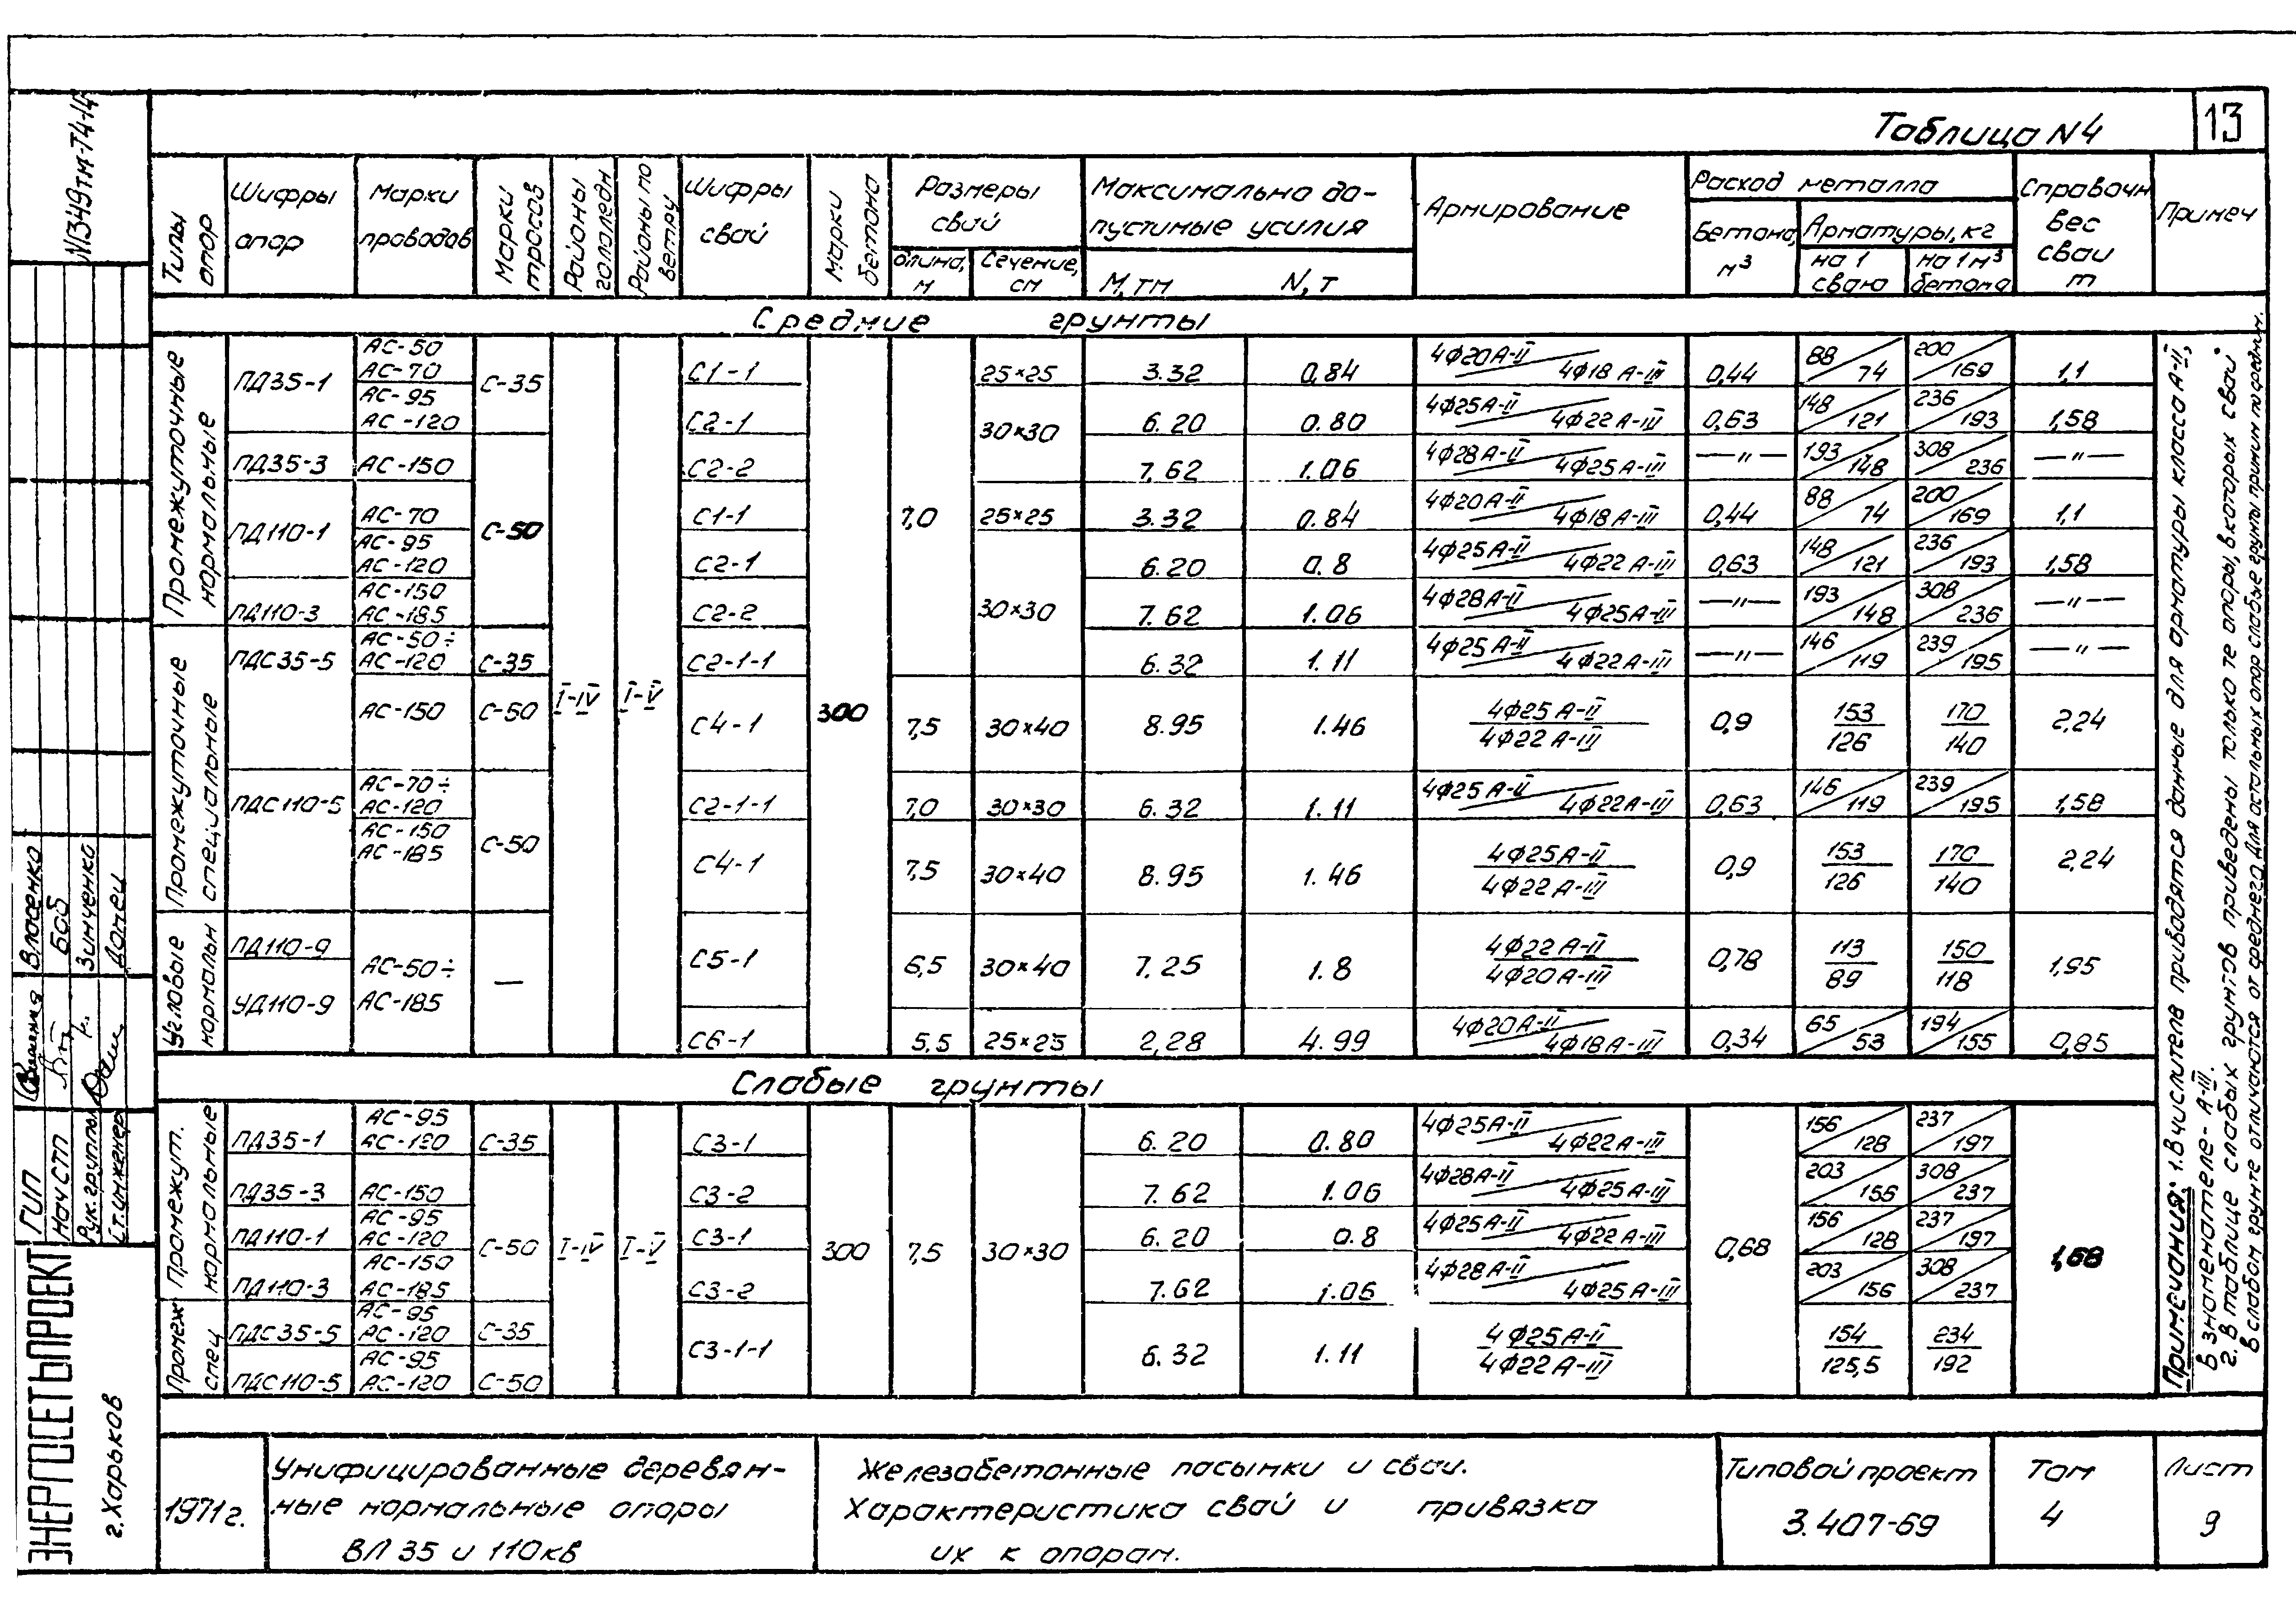 N1349тм-Т4-14
Таблица N4
13
Типы опор
Шифры опор
Марки проводов
Марки тросов
Районы гололедн
Районы по ветру
Шифры свай
Марки бетона
Размеры свай
длина, м
Сечение, см
Максимально допустимые усилия
М, тм
N, т
Армирование
Расход металла
Бетона, м³
Арматуры, кг
на 1 сваю
на 1 м³ бетона
Справочн вес сваи т
Примеч
Средние грунты
Промежуточные нормальные
ПД35-1 АС-50 АС-70 С-35 С1-1 25×25 3.32 0,84 4Ф20А-II 4Ф18А-III 0,44 88 74 200 169 1,1
АС-95 АС-120 С2-1 30×30 6.20 0.80 4Ф25А-II 4Ф22А-III 0,63 148 121 236 193 1,58
ПД35-3 АС-150 С2-2 7.62 1.06 4Ф28А-II 4Ф25А-III —〃— 193 148 308 236 —〃—
ПД110-1 АС-70 С-50 С1-1 7,0 25×25 3.32 0.84 4Ф20А-II 4Ф18А-III 0,44 88 74 200 169 1,1
АС-95 АС-120 С2-1 6.20 0.8 4Ф25А-II 4Ф22А-III 0,63 148 121 236 193 1,58
ПД110-3 АС-150 АС-185 С2-2 30×30 7.62 1.06 4Ф28А-II 4Ф25А-III —〃— 193 148 308 236 —〃—
Промежуточные специальные
ПДС35-5 АС-50÷ АС-120 С-35 С2-1-1 6.32 1.11 4Ф25А-II 4Ф22А-III —〃— 146 119 239 195 —〃—
АС-150 С-50 I-IV I-V С4-1 300 7,5 30×40 8.95 1.46 4Ф25А-II 4Ф22А-III 0,9 153 126 170 140 2,24
ПДС110-5 АС-70÷ АС-120 С2-1-1 7,0 30×30 6.32 1.11 4Ф25А-II 4Ф22А-III 0,63 146 119 239 195 1,58
АС-150 АС-185 С-50 С4-1 7,5 30×40 8.95 1.46 4Ф25А-II 4Ф22А-III 0,9 153 126 170 140 2,24
Угловые нормальн
ПД110-9 АС-50÷ АС-185 — С5-1 6,5 30×40 7.25 1.8 4Ф22А-II 4Ф20А-III 0,78 113 89 150 118 1,95
УД110-9 С6-1 5,5 25×25 2,28 4.99 4Ф20А-II 4Ф18А-III 0,34 65 53 194 155 0,85
Слабые грунты
Промежут. нормальные
ПД35-1 АС-95 АС-120 С-35 С3-1 6.20 0.80 4Ф25А-II 4Ф22А-III 156 128 237 197
ПД35-3 АС-150 С3-2 7.62 1.06 4Ф28А-II 4Ф25А-III 203 156 308 237
ПД110-1 АС-95 АС-120 С-50 I-IV I-V С3-1 300 7,5 30×30 6.20 0.8 4Ф25А-II 4Ф22А-III 0,68 156 128 237 197 1,68
ПД110-3 АС-150 АС-185 С3-2 7.62 1.06 4Ф28А-II 4Ф25А-III 203 156 308 237
Промеж спец
ПДС35-5 АС-95 АС-120 С-35 С3-1-1 6.32 1.11 4Ф25А-II 4Ф22А-III 154 125,5 234 192
ПДС110-5 АС-95 АС-120 С-50
Примечания: 1. В числителе приводятся данные для арматуры класса А-II,
в знаменателе - А-III.
2. В таблице слабых грунтов приведены только те опоры, в которых сваи
в слабом грунте отличаются от среднего. Для остальных опор слабые грунты приним по средним.
Власенко
Боб
Зинченко
Донец
ГИП
Нач СТП
Рук. группы
Ст. инженер
ЭНЕРГОСЕТЬПРОЕКТ
г. Харьков
1971г.
Унифицированные деревян-
ные нормальные опоры
ВЛ 35 и 110кв
Железобетонные пасынки и сваи.
Характеристика свай и привязка
их к опорам.
Типовой проект
3.407-69
Том
4
Лист
9